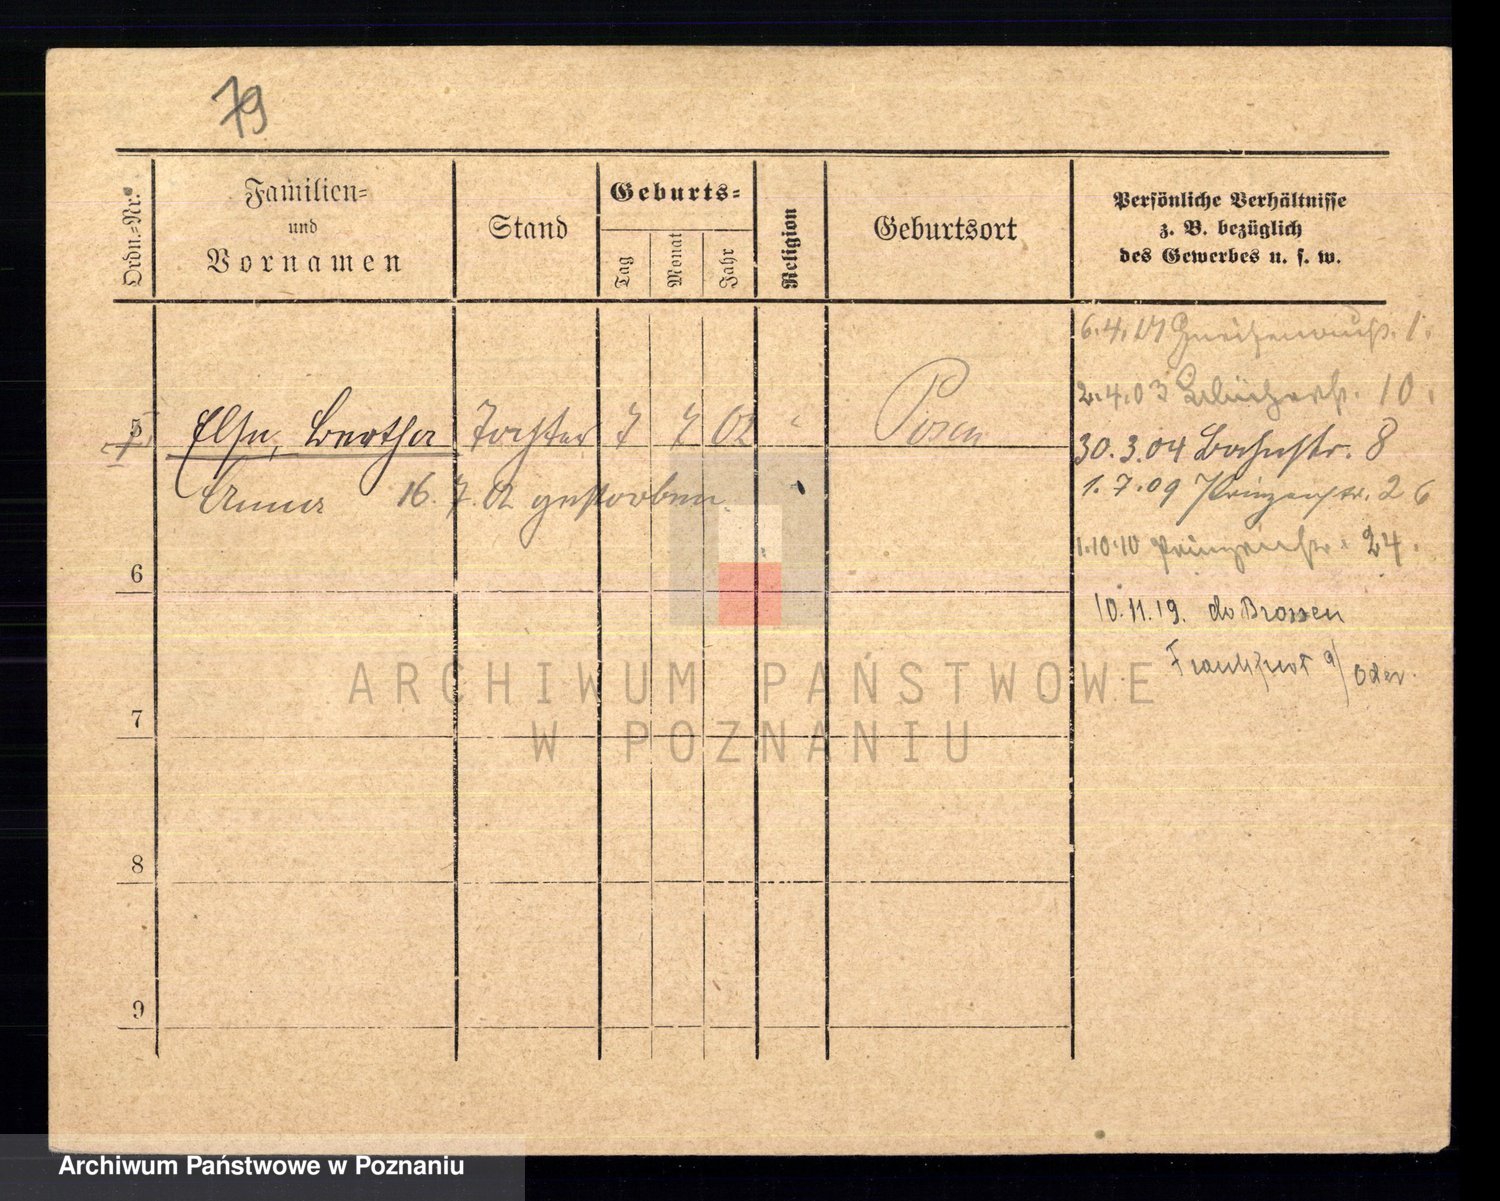 79
Ordn.=Nr.
Familien=
und
Vornamen
Stand
Geburts=
Tag
Monat
Jahr
Religion
Geburtsort
Persönliche Verhältnisse
z. B. bezüglich
des Gewerbes u. s. w.
6.4.   Gneisenaustr. 1.
2.4.03 Blücherstr. 10.
5 Else, Bertha Tochter 7 7 02 " Posen
30.3.04 Bahnstr. 8
Anna 16.7.02 gestorben.
1.7.09 Prinzenstr. 26
1.10.10 Prinzenstr. 24.
6
10.11.19.
Frankfurt a/Oder.
7
8
9
ARCHIWUM PAŃSTWOWE
W POZNANIU
Archiwum Państwowe w Poznaniu